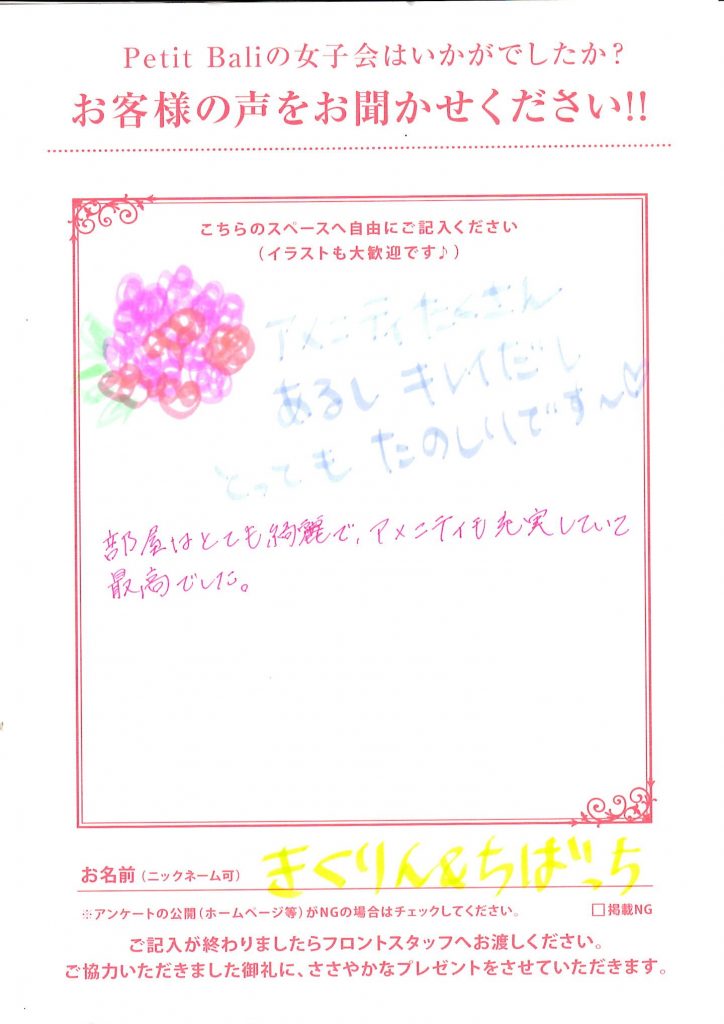 Petit Baliの女子会はいかがでしたか？
お客様の声をお聞かせください!!
こちらのスペースへ自由にご記入ください
（イラストも大歓迎です♪）
アメニティたくさん
あるし キレイだし
とっても たのしいです〜♡
部屋はとても綺麗で、アメニティも充実していて
最高でした。
お名前（ニックネーム可） きくりん&ちばっち
※アンケートの公開（ホームページ等）がNGの場合はチェックしてください。 □掲載NG
ご記入が終わりましたらフロントスタッフへお渡しください。
ご協力いただきました御礼に、ささやかなプレゼントをさせていただきます。